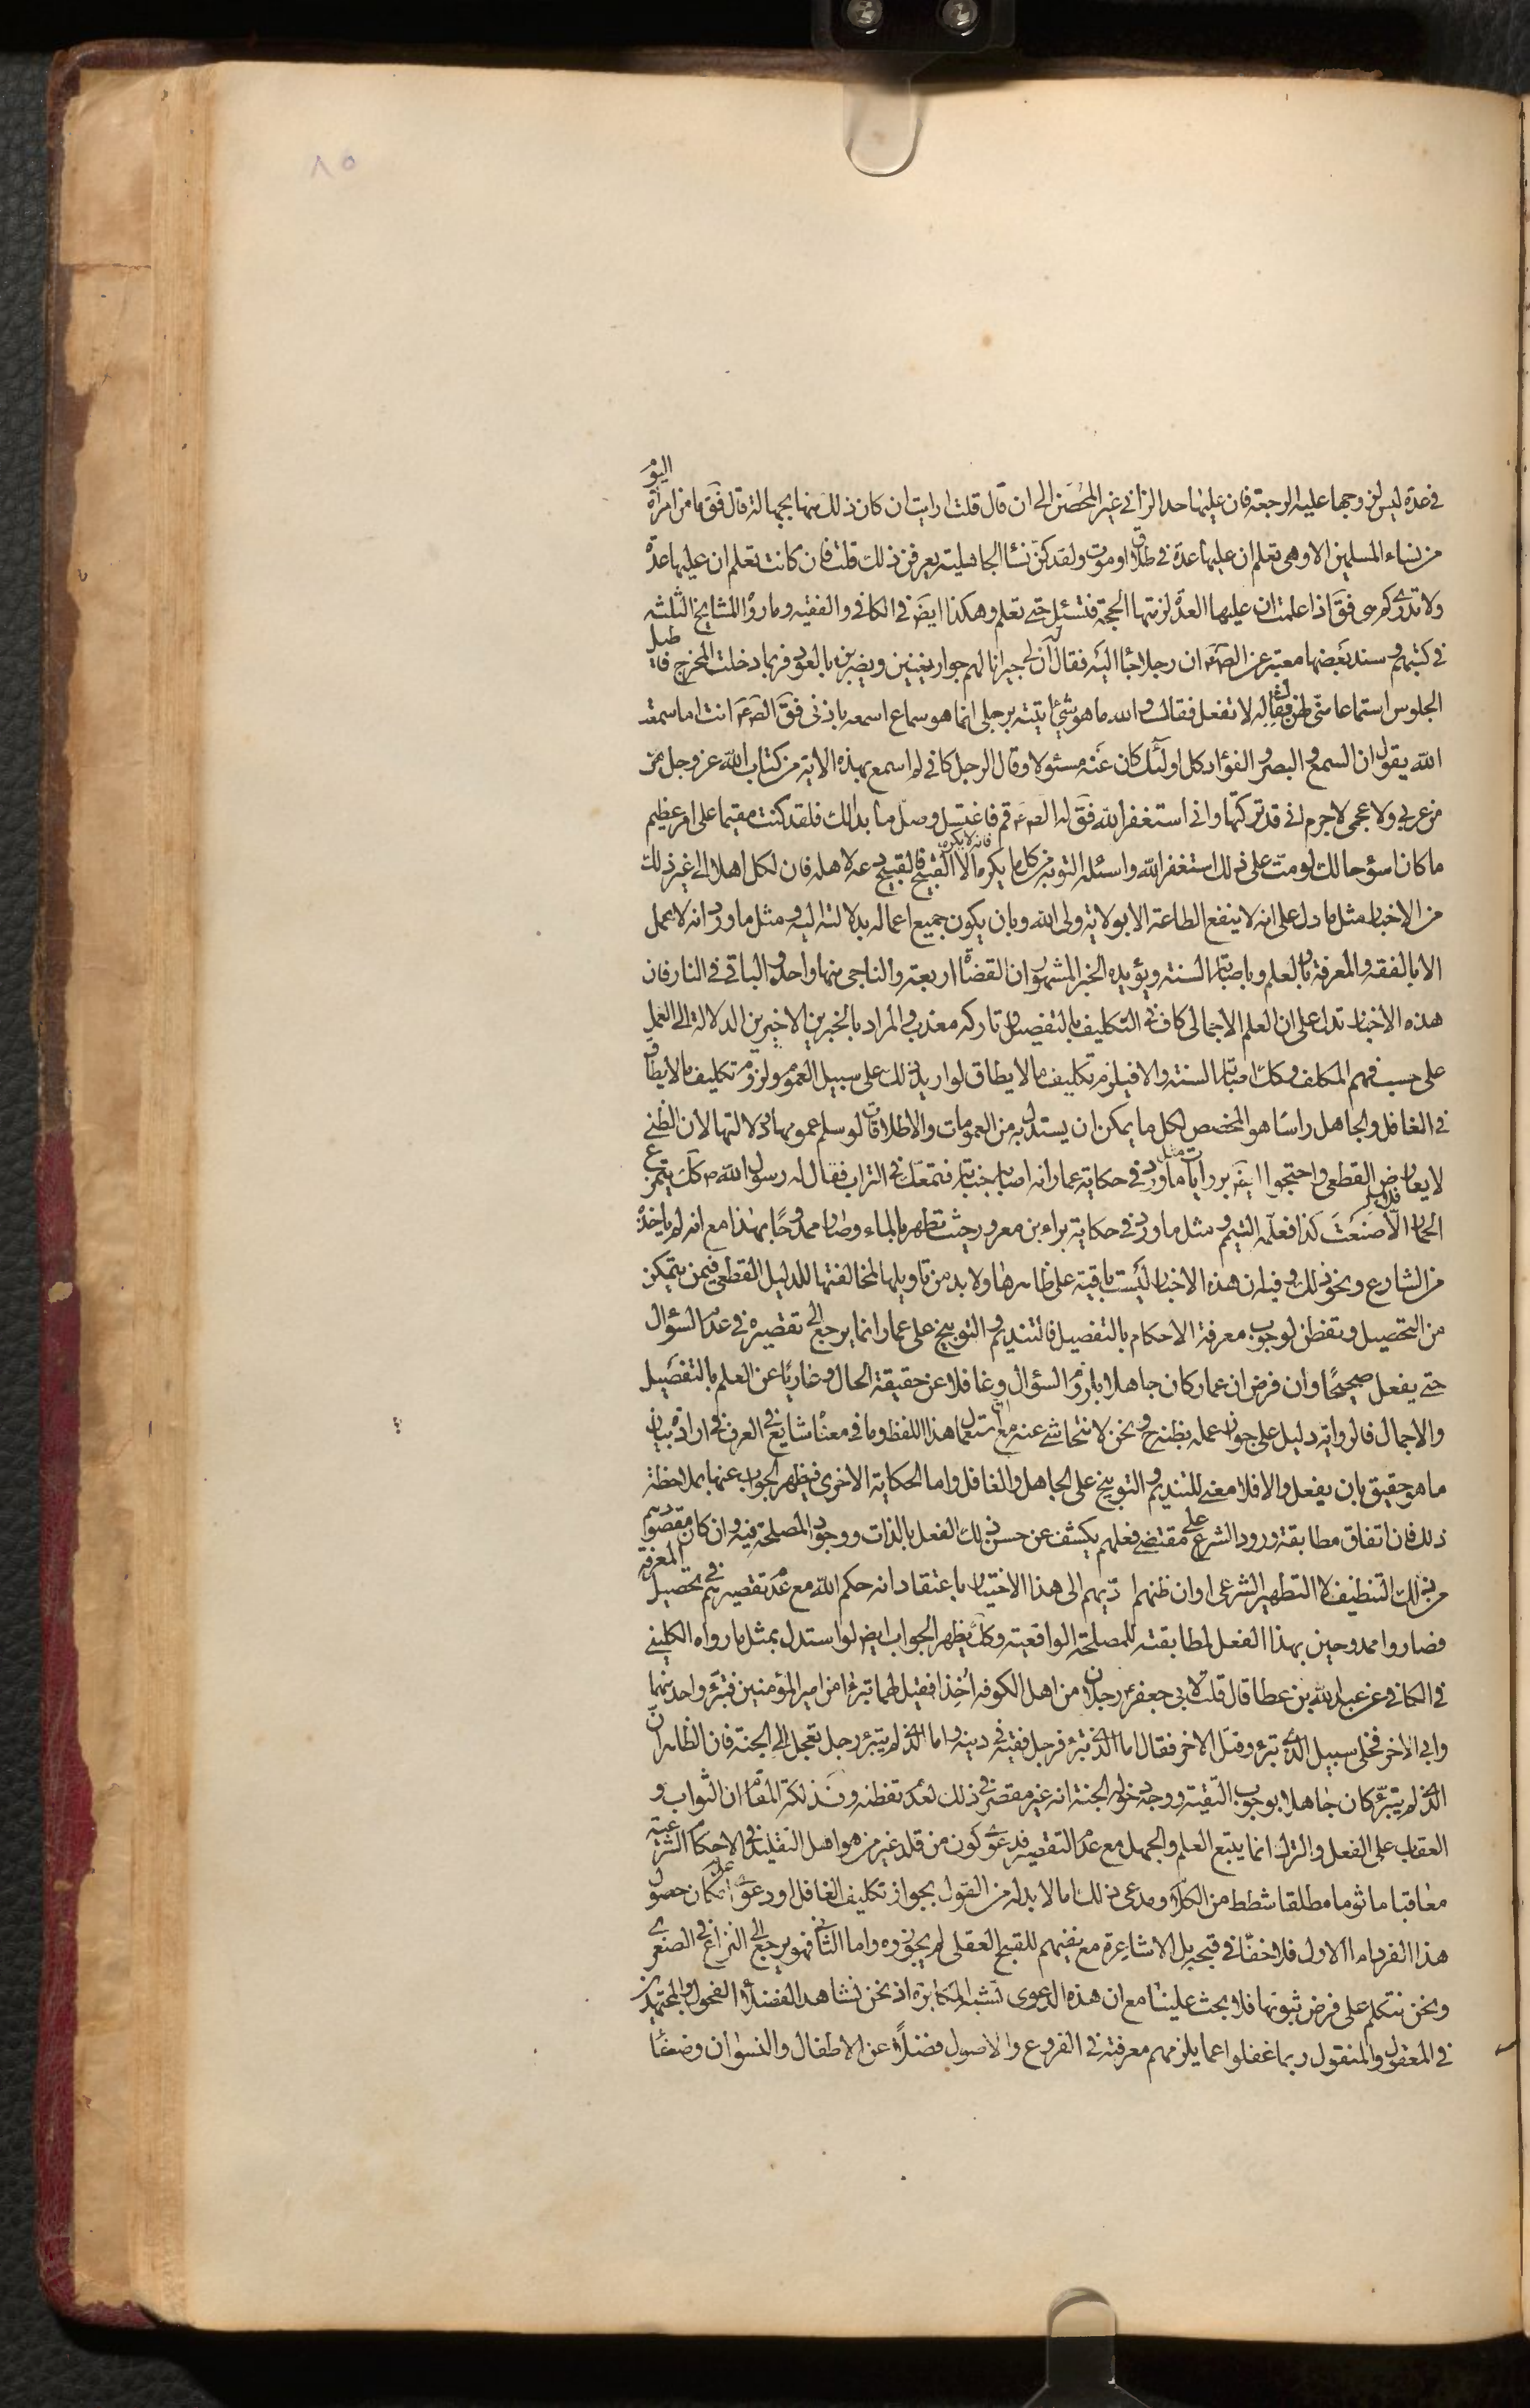 ٨٥
في عدة ليس لزوجها عليه الرجعة فان عليها حد الزاني غير المحصَن الى ان قال قلت ارايت ان كان ذلك منها بجهالة قال فقَ ما من امراة اليوم
من نساء المسلمين الا وهى تعلم ان عليها عدة في طلاق او موت ولقد كنّ نسا الجاهلية يعرفن ذلك قلت فان كانت تعلم ان عليها عدّة
ولا تدرى كم هى فقَ اذا علمت ان عليها العدّة لزمتها الحجة فتسئل حتى تعلم وهكذا ايضَ في الكافي والفقيه وما رواه المشايخ الثلثه
في كتبهم وسند بعضها معتبر عن الصَّ ع ان رجلا جاء اليه فقال له ان لى جيرانا لهم جوار يغنين ويضربن بالعود فربما دخلت المخرج فاطيل
الجلوس استماعا منّى لهن فقال له لا تفعل فقال والله ما هو شيء اتيته برجلى انما هو سماع اسمعه باذنى فقَ الصَّ ع انت اما سمعت
الله يقول ان السمع والبصر والفؤاد كل اولئك كان عنه مسئولا وقال الرجل كانى لم اسمع بهذه الاية من كتاب الله عز وجل من
من عربي ولا عجمى لا جرم انى قد تركتها وانى استغفر الله فقَ له الصَّ ع قم فاغتسل وصلّ ما بدالك فلقد كنت مقيما على امر عظيم
ما كان اسوء حالك لو متّ على ذلك استغفر الله واسئله التوبة من كل ما يكره فانه لا يكره الا القبيح والقبيح دعه لاهله فان لكل اهلا الى غير ذلك
من الاخبار مثل ما دل على انه لا ينفع الطاعة الا بولاية ولى الله وبان يكون جميع اعماله بدلالته اليه ومثل ما ورد انه لا عمل
الا بالفقه والمعرفة وبالعلم وباصابة السنة ويؤيده الخبر المشهور ان القضاة اربعة والناجى منها واحد والباقى في النار فان
هذه الاخبار تدل على ان العلم الاجمالى كاف في التكليف بالتفصيل وتاركه معذب والمراد بالخبرين الاخيرين الدلالة الى العمل
على حسب فهم المكلف وكك اصابة السنة والا فيلزم تكليف ما لا يطاق لو اريد ذلك على سبيل العموم ولزوم تكليف ما لا يطاق
في الغافل والجاهل راسا هو المخصص لكل ما يمكن ان يستدل به من العمومات والاطلاقات لو سلم عمومها ودلالتها لان الظنى
لا يعارض القطعى واحتجوا ايضَ بروايات مثل ما ورد في حكاية عمار انه اصابه جنابة فتمعّك في التراب فقال له رسول الله ص كك يتمرغ
الحمار الا صنعتَ كذا فعلّمه التيمم ومثل ما ورد في حكاية براء بن معرور حيث تطهر بالماء وصار ممدوحًا بهذا مع انه لم ياخذه
من الشارع ونحو ذلك وفيه ان هذه الاخبار ليست باقية على ظاهرها ولا بد من تاويلها لمخالفتها للدليل القطعى فيمن يتمكن
من التحصيل وتفطن لوجوب معرفة الاحكام بالتفصيل فالتنديم والتوبيخ على عمار انما يرجع الى تقصيره في عدم السؤال
حتى يفعل صحيحًا وان فرض ان عمار كان جاهلا بلزوم السؤال وغافلا عن حقيقة الحال وعاريًا عن العلم بالتفصيل
والاجمال فالرواية دليل على جواز عمله بظنه ح ونحن لا نتحاشى عنه مع ان استعمال هذا اللفظ وما في معناه شايع في العرف في ارادة بيان
ما هو حقيق بان يفعل والا فلا معنى للتنديم والتوبيخ على الجاهل والغافل واما الحكاية الاخرى فيظهر الجواب عنها بملاحظة
ذلك فان اتفاق مطابقة ورود الشرع على مقتضى فعلهم يكشف عن حسن ذلك الفعل بالذات ووجود المصلحة فيه وان كان مقصودهم
من ذلك التنظيف لا التطهير الشرعى او ان ظنهم ادّيهم الى هذا الاختيار باعتقاد انه حكم الله مع عدم تقصيرهم في تحصيل المعرفة
فصاروا ممدوحين بهذا الفعل لمطابقته للمصلحة الواقعية وكك يظهر الجواب ايض لو استدل بمثل ما رواه الكلينى
في الكافي عن عبد الله بن عطا قال قلت لابي جعفر ع رجلان من اهل الكوفه اُخِذا فقيل لهما تبرءا من امير المؤمنين فتبرّء واحد منهما
وابى الاخر فخلى سبيل الذى تبرء وقتل الاخر فقال اما الذى تبرء فرجل فقيه في دينه واما الذى لم يتبرء رجل تعجل الى الجنة فان الظاهر انّ
الذى لم يتبرّء كان جاهلا بوجوب التقية ووجه دخوله الجنة انه غير مقصر في ذلك لعدم تفطنه وفذلكة المقام ان الثواب و
العقاب على الفعل والترك انما يتبع العلم والجهل مع عدم التقصير فدعوى كون من قلد غير من هو اهل التقليد في الاحكام الشرعية
معاقبا ماثوما مطلقا شطط من الكلام ومدعى ذلك اما لا بد له من القول بجواز تكليف الغافل او دعوى عدم امكان حصول
هذا الفرد اما الاول فلا خفاء في قبحه بل الاشاعرة مع نفيهم للقبح العقلى لم يجوزوه واما الثانى فهو يرجع الى النزاع في الصغرى
ونحن نتكلم على فرض ثبوتها فلا بحث علينا مع ان هذه الدعوى تشبه المكابرة اذ نحن نشاهد الفضلاء الفحول والمجتهدين
في المعقول والمنقول ربما غفلوا عما يلزمهم معرفته في الفروع والاصول فضلًا عن الاطفال والنسوان وضعفاء